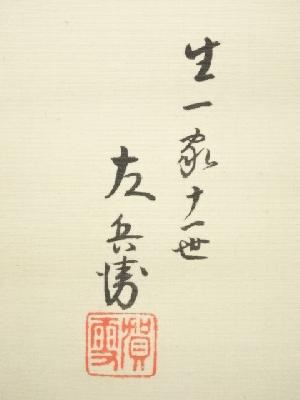 生一家十一世
左兵衛
賀雪